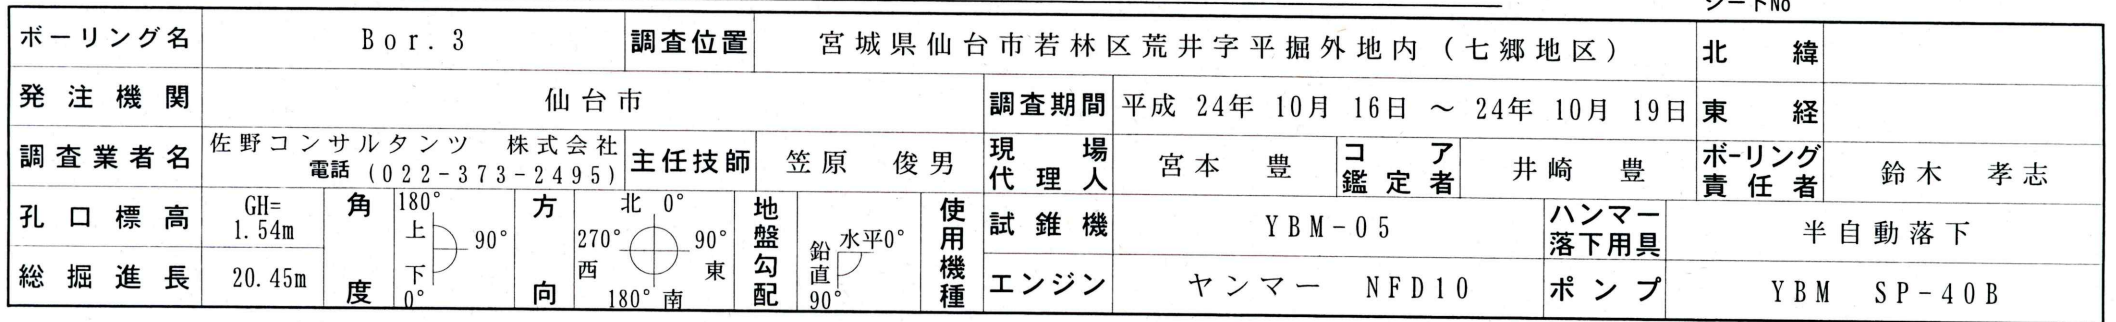 シートNo
ボーリング名 Bor.3 調査位置 宮城県仙台市若林区荒井字平掘外地内(七郷地区) 北緯
発注機関 仙台市 調査期間 平成 24年 10月 16日 ～ 24年 10月 19日 東経
調査業者名 佐野コンサルタンツ 株式会社
電話(022-373-2495)
主任技師 笠原 俊男 現場代理人 宮本 豊 コア鑑定者 井崎 豊 ボーリング責任者 鈴木 孝志
孔口標高 GH=
1.54m
角度 180° 上 90° 下 0° 方向 北 0° 270° 西 90° 東 180° 南 地盤勾配 水平0° 鉛直 90° 使用機種 試錐機 YBM-05 ハンマー落下用具 半自動落下
総掘進長 20.45m エンジン ヤンマー NFD10 ポンプ YBM SP-40B